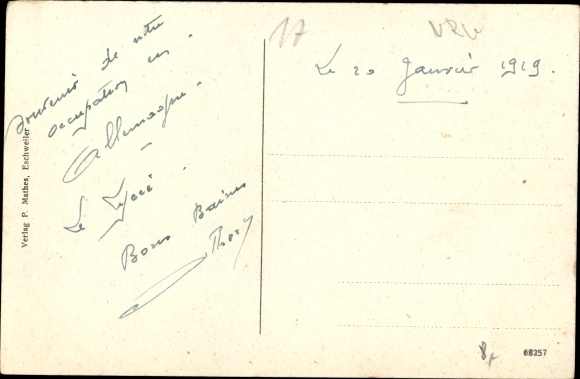 Souvenir de notre
occupation en
Allemagne.
Le Lycée.
Bons Baisers
Verlag P. Mathes, Eschweiler
17
Le 20 Janvier 1919.
68257